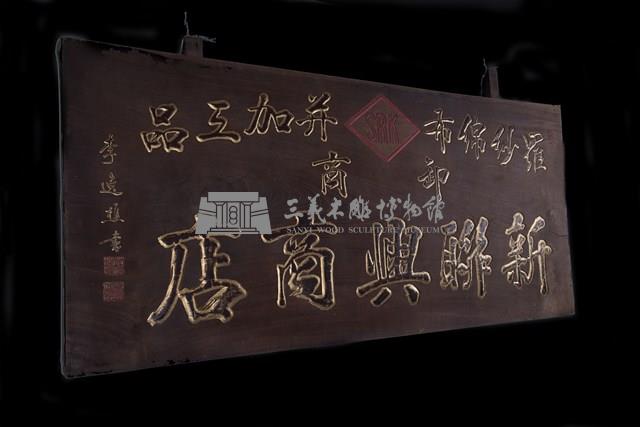 羅紗綿布
SRK
并加工品
卸商
新聯興商店
李逸樵書
三義木雕博物館
SANYI WOOD SCULPTURE MUSEUM